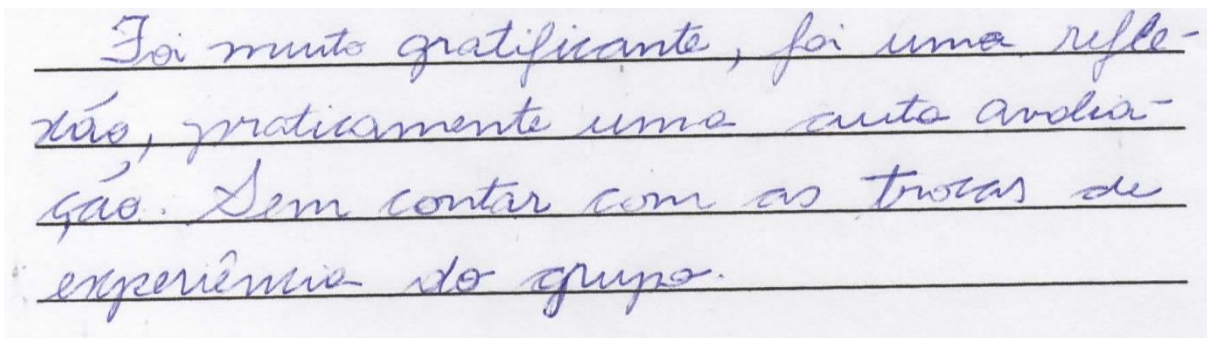 Foi muito gratificante, foi uma refle-
xão, praticamente uma auto avalia-
ção. Sem contar com as trocas de
experiência do grupo.